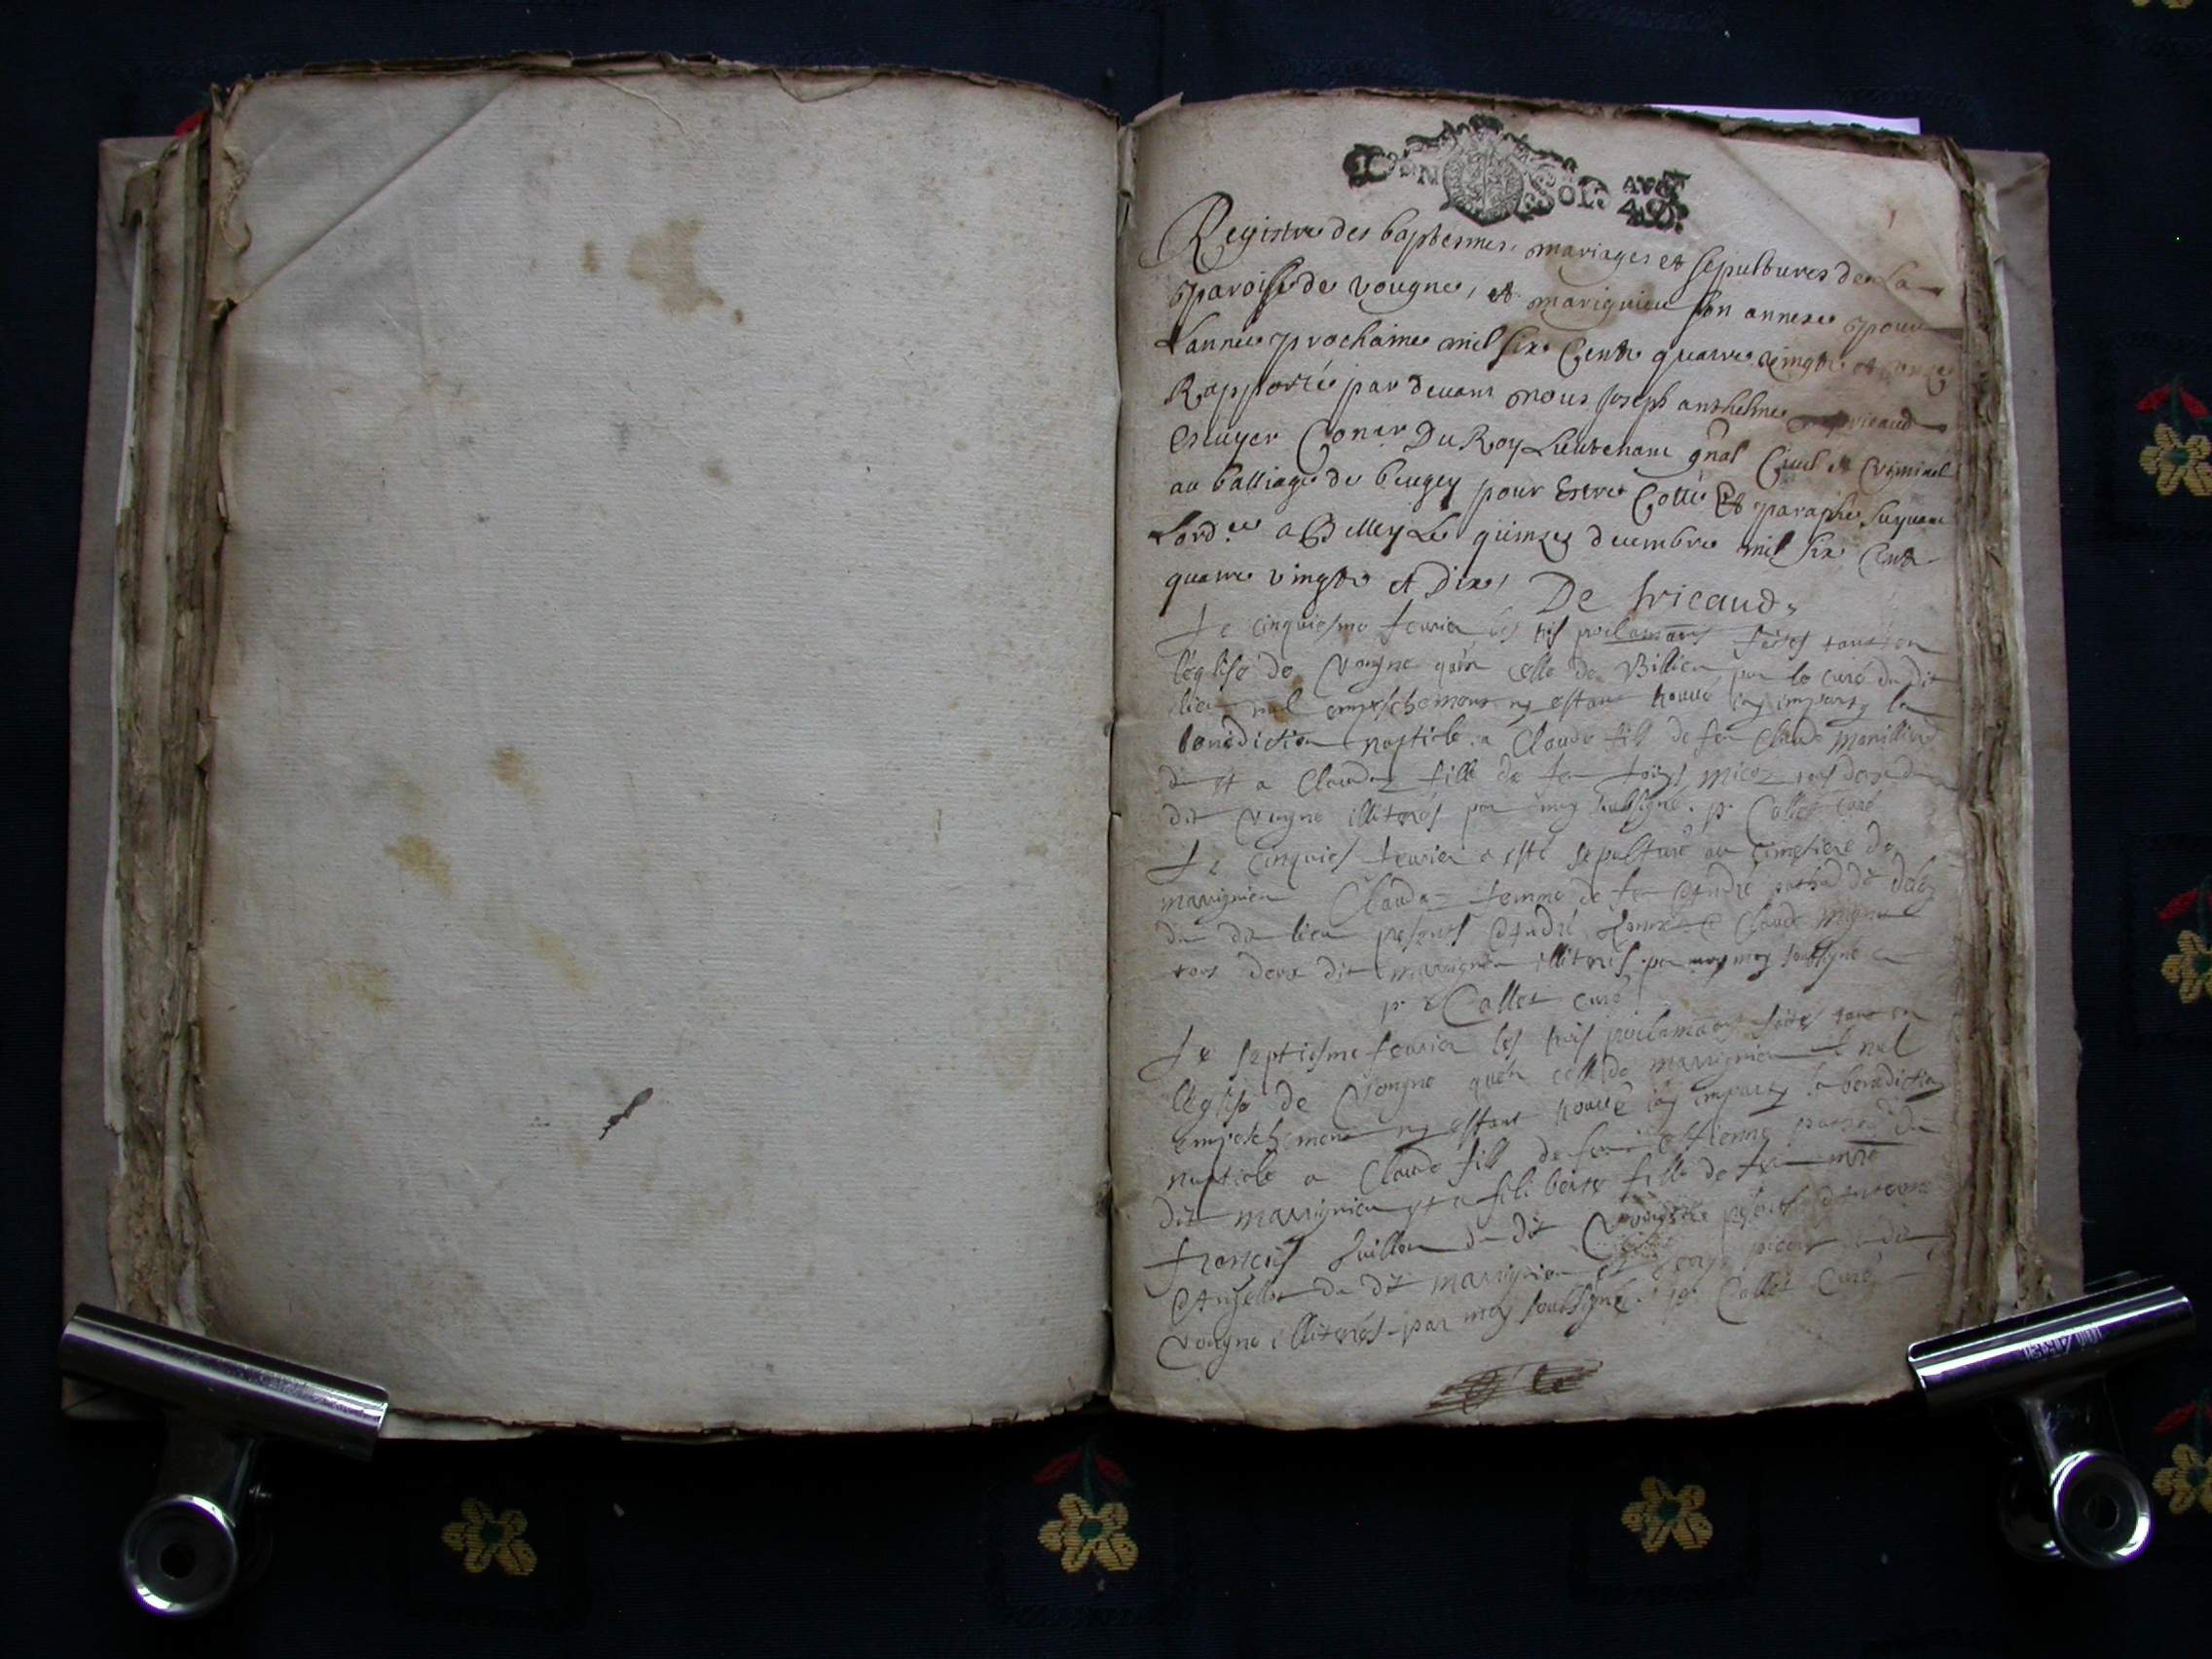 VN SOL
Registre des baptesmes, mariages et sepultures de La
paroisse de vougne, et marignieu son annexe pour
Lannee prochaine mil six Cents quatre vingts et onze
Rapporté par devant nous Joseph anthelme tricaud
Escuyer Coner Du Roy Lieutenant gnal Civil et Criminel
au balliage de beugey pour Estre Cotté Et paraphé suyvant
Lordce a Belley Le quinze decembre mil six Cents
quatre vingts et Dix, De tricaud
Le cinquiesme fevrier les trois proclamaons faites tant en
léglise de Vongne quen celle de Billieu par le curé du dit
lieu nul empeschement ny estant trouvé jay imparty la
benediction nuptiale a Claude fils de feu Claude
du et a Claudaz fille de feu tous deux du
dit vongne illiterés par moy soubsigné. p. Callet curé
Le cinquies fevrier a esté sepulturé au cimetiere de
marignieu Claudaz femme de feu André dit
du dit lieu presents André et Claude
tous deux dit marignieu illiterés par moy soubsigné
p. Callet curé
Le septiesme fevrier les trois proclamaons faites tant en
léglise de Vongne quen celle de marignieu et nul
empeschement ny estant trouvé jay imparty la benediction
nuptiale a Claude fils de feu Etienne du
dit marignieu et a filiberte fille de feu mre
francois du dit Vongne presents
du dit marignieu et du dit
vongne illiterés par moy soubsigné. p. Callet Curé